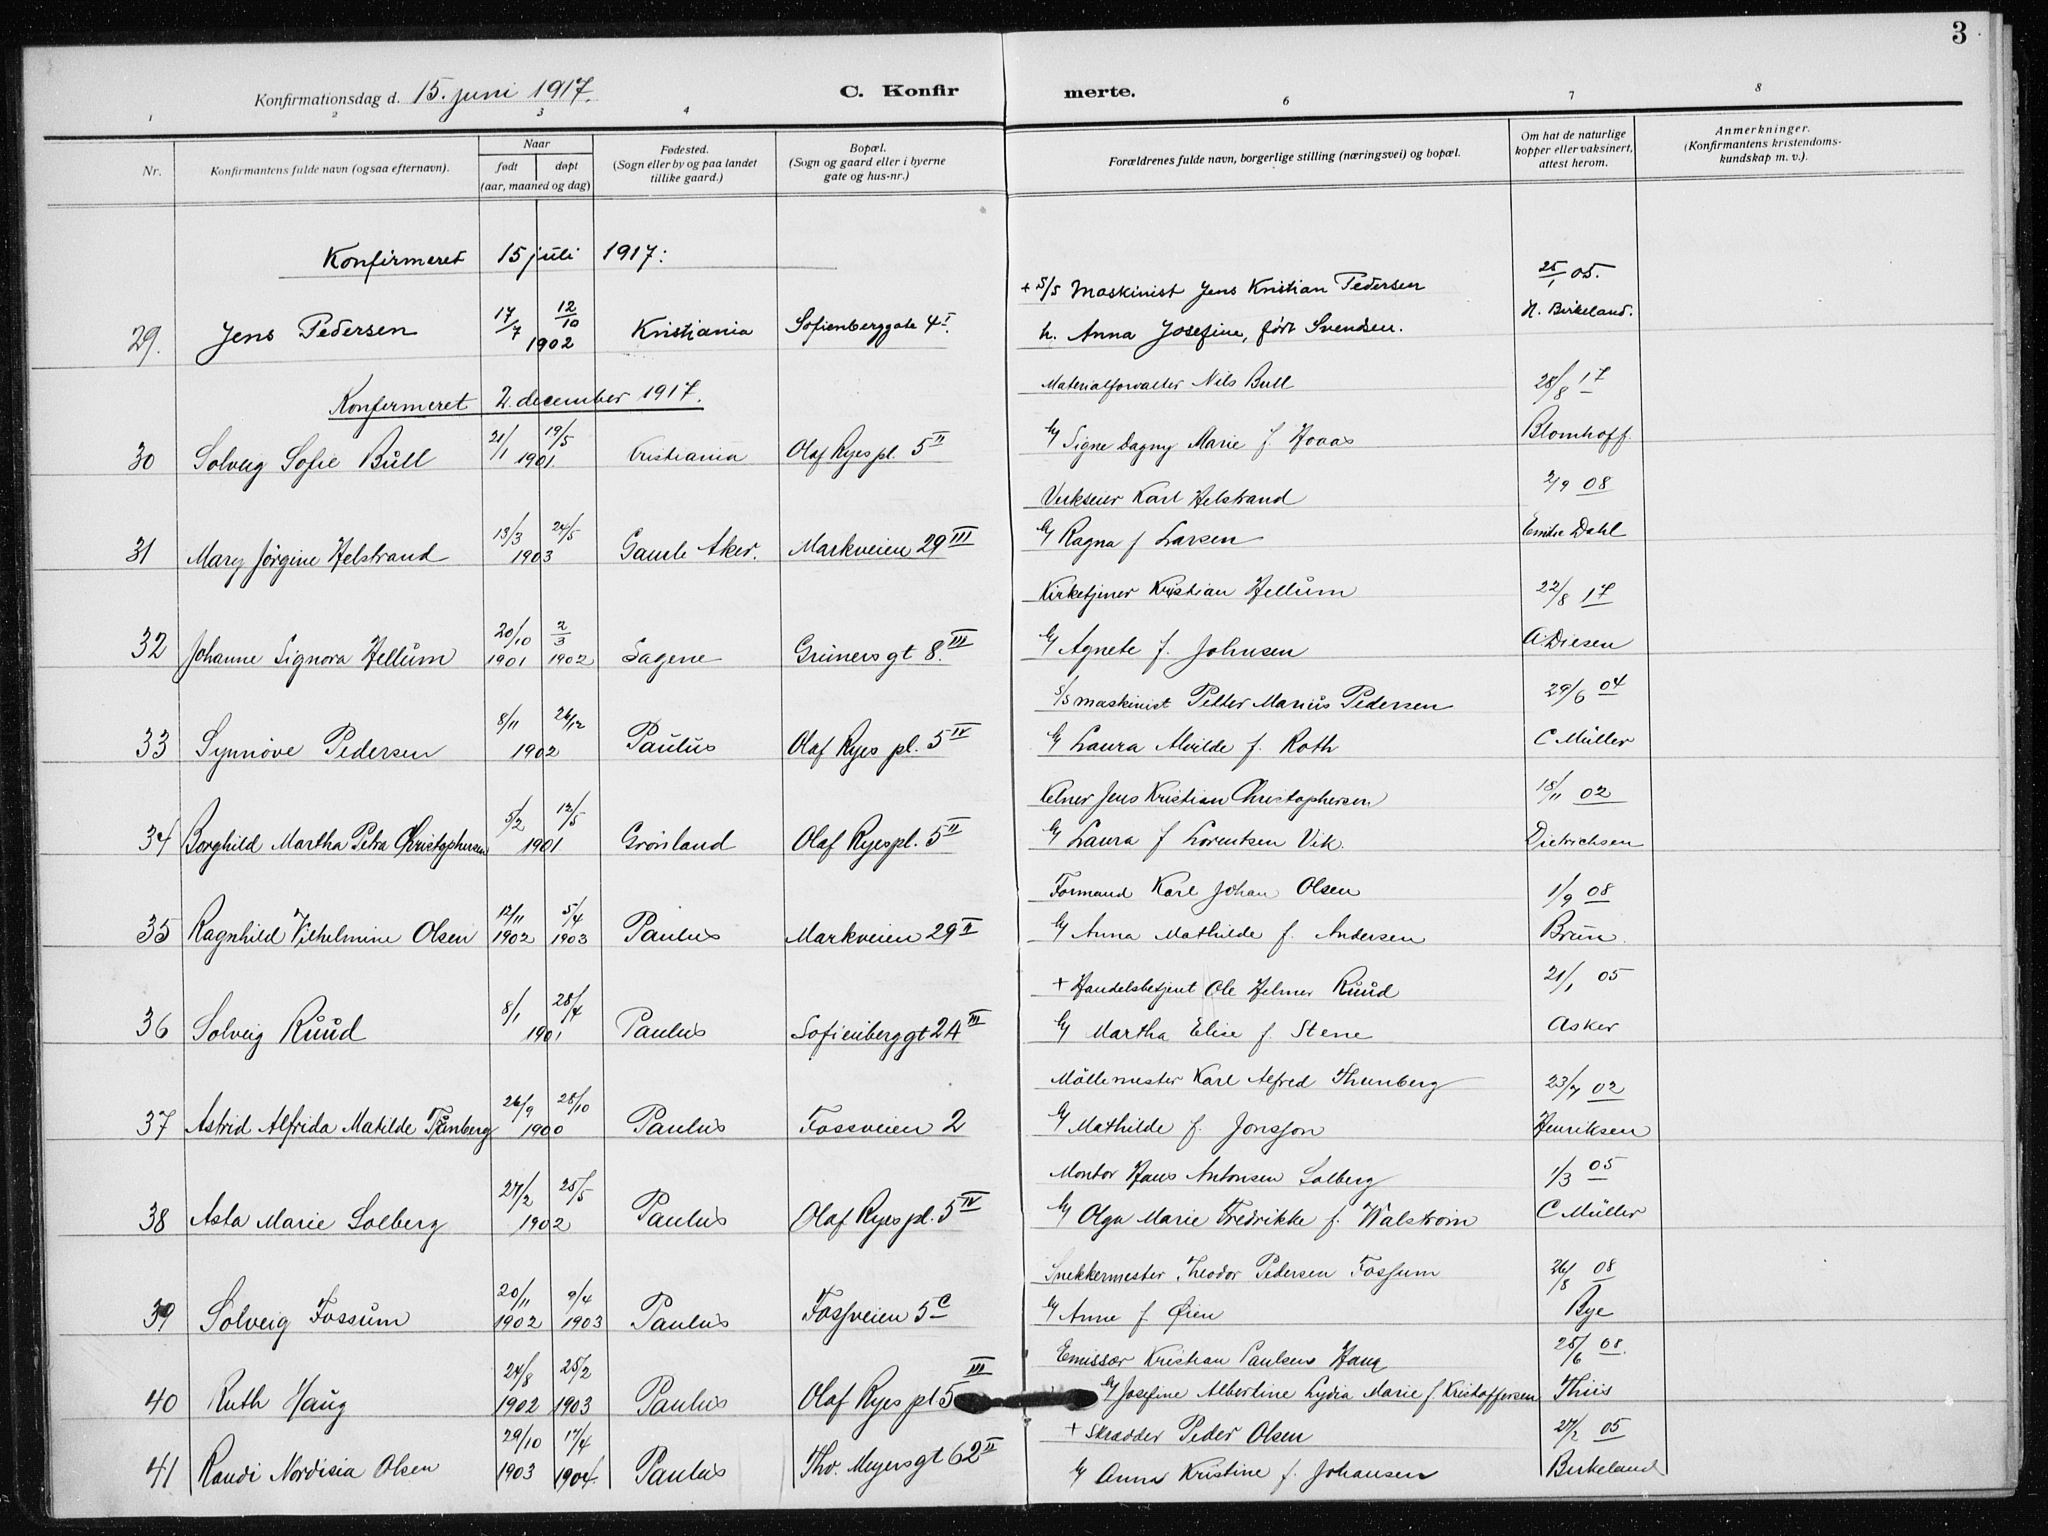 3
Konfirmationsdag d. 15. juni 1917. C. Konfirmerte.
1 2 3 4 6 7 8
Nr. Konfirmantens fulde navn (ogsaa efternavn). Naar født døpt (aar, maaned og dag) Fødested. (Sogn eller by og paa landet tillike gaard.) Bopæl. (Sogn og gaard eller i byerne gate og hus-nr.) Forældrenes fulde navn, borgerlige stilling (næringsvei) og bopæl. Om hat de naturlige kopper eller vaksinert, attest herom. Anmerkninger. (Konfirmantens kristendomskundskap m. v.).
Konfirmeret 15 juli 1917:
+ S/S Maskinist Jens Kristian Pedersen 25/1 05.
29. Jens Pedersen 17/7 12/10 1902 Kristiania Sofienberggate 4 I. h. Anna Josefine, født Svendsen. H. Birkeland.
Konfirmeret 2. december 1917.
Materialforvalter Nils Bull 28/8 17
30 Solveig Sofie Bull 21/1 19/5 1901 Kristiania Olaf Ryes pl. 5 II Signe Dagny Marie f. Hoaas Blomhoff
Karl Helstrand 2/9 08
31 Mary Jørgine Helstrand 13/3 24/5 1903 Gamle Aker. Markveien 29 III Ragna f Larsen Emilie Dahl
Kirketjener Kristian Hellum 22/8 17
32 Johanne Signora Hellum 20/10 1901 2/3 1902 Sagene Grüners gt 8. III Agnete f. Johnsen A. Diesen
S/S maskinist Petter Marius Pedersen 29/6 04
33 Synnøve Pedersen 8/11 26/12 1902 Paulus Olaf Ryes pl. 5 IV Laura Alvilde f. Roth C Müller
Kelner Jens Kristian Christophersen 18/11 02
34 Borghild Martha Petra Christophersen 5/2 12/5 1901 Grønland Olaf Ryes pl. 5 II Laura f Lorentsen Vik. Dietrichsen
Formand Karl Johan Olsen 1/9 08
35 Ragnhild Vilhelmine Olsen 12/11 1902 5/4 1903 Paulus Markveien 29 II Anna Mathilde f. Andersen Brun
+ Handelsbetjent Ole Helmer Ruud 21/1 05
36 Solveig Ruud 8/1 28/4 1901 Paulus Sofienberggt 24 III Martha Elise f. Stene Asker
Møllemester Karl Alfred Thunberg 23/7 02
37 Astrid Alfrida Matilde Tunberg 26/9 28/10 1900 Paulus Fossveien 2 Mathilde f. Jonsson Henriksen
Montør Hans Antonsen Solberg 1/3 05
38 Asta Marie Solberg 27/2 25/5 1902 Paulus Olaf Ryes pl. 5 IV Olga Marie Fredrikke f. Walstrøm C Müller
Snekkermester Theodor Pedersen Fossum 26/8 08
39 Solveig Fossum 20/11 1902 9/4 1903 Paulus Fossveien 5 c Anne f Øien Bye
Emissær Kristian Paulsen Haug 25/6 08.
40 Ruth Haug 24/8 1902 25/2 1903 Paulus Olaf Ryes pl 5 III Josefine Albertine Lydia Marie f Kristoffersen Thiis
+ Skrædder Peder Olsen 27/2 05
41 Randi Nordisia Olsen 29/10 1903 17/4 1904. Paulus Thv. Meyersgt 62 II Anna Kristine f. Johansen Birkeland